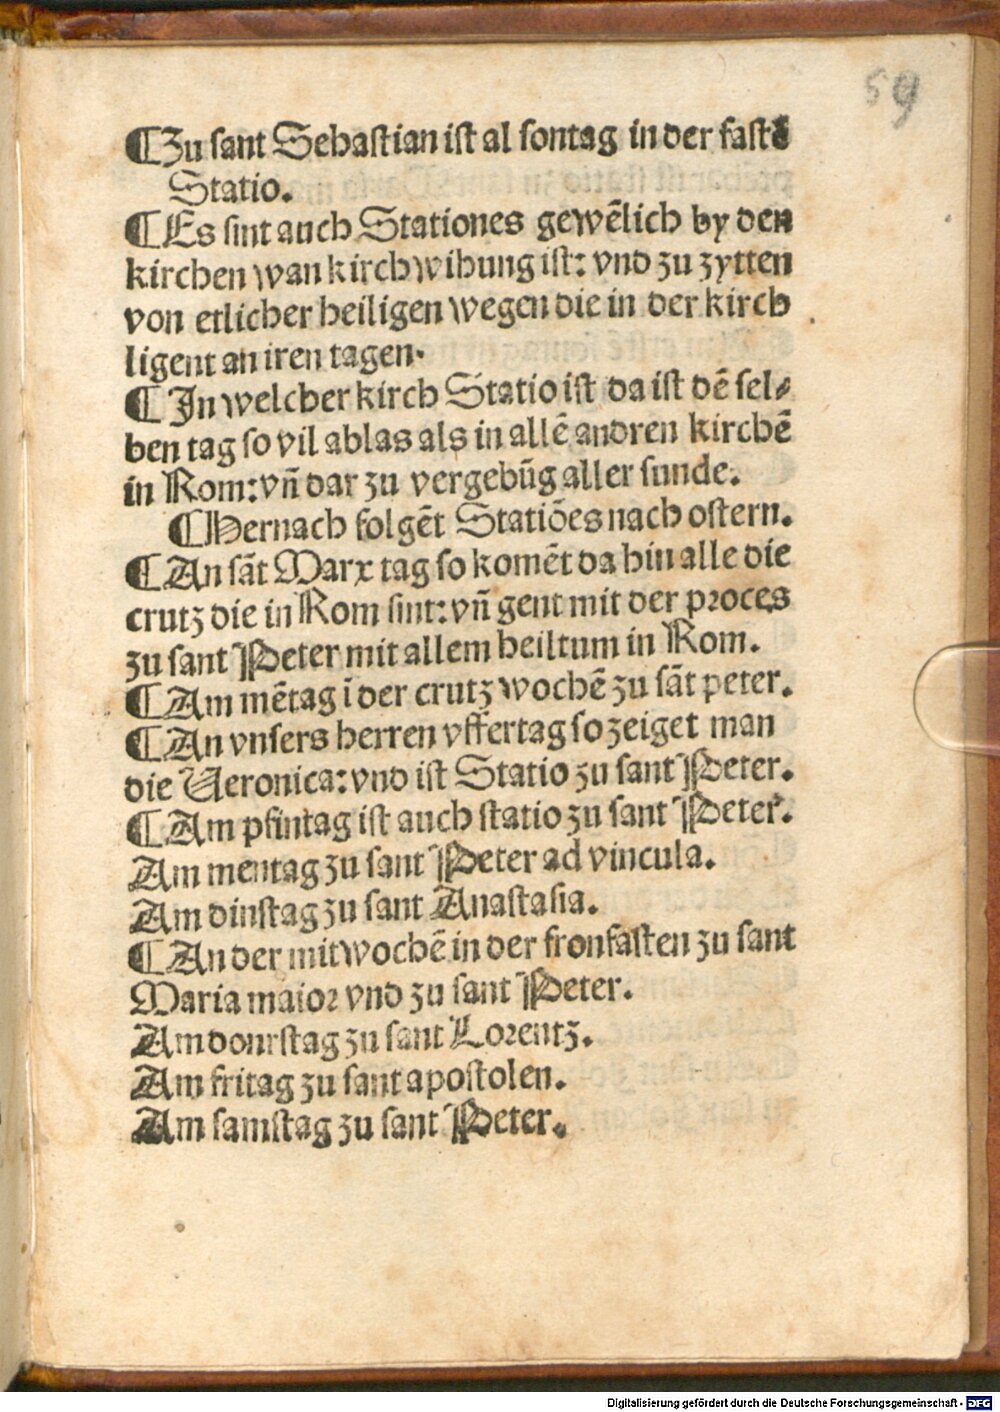 59
¶Zu sant Sebastian ist al sontag in der fastē
Statio.
¶Es sint auch Stationes gewēlich by den
kirchen wan kirchwihung ist: vnd zu zytten
von etlicher heiligen wegen die in der kirch
ligent an iren tagen.
¶In welcher kirch Statio ist da ist dē sel⸗
ben tag so vil ablas als in allē andren kirchē
in Rom: vñ dar zu vergebūg aller sunde.
¶Hernach folgēt Statiōes nach ostern.
¶An sāt Marx tag so komēt da hin alle die
crutz die in Rom sint: vñ gent mit der proces
zu sant Peter mit allem heiltum in Rom.
¶Am mētag ī der crutz wochē zu sāt peter.
¶An vnsers herren vffertag so zeiget man
die Veronica: vnd ist Statio zu sant Peter.
¶Am pfintag ist auch statio zu sant Peter.
Am mentag zu sant Peter ad vincula.
Am dinstag zu sant Anastasia.
¶An der mitwochē in der fronfasten zu sant
Maria maior vnd zu sant Peter.
Am donrstag zu sant Lorentz.
Am fritag zu sant apostolen.
Am samstag zu sant Peter.
Digitalisierung gefördert durch die Deutsche Forschungsgemeinschaft - DFG